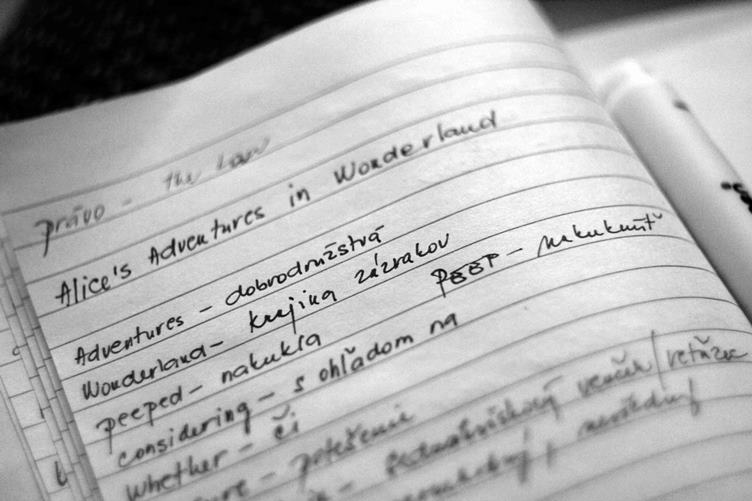 právo - the law
Alice's Adventures in Wonderland
Adventures - dobrodružstvá
Wonderland - krajina zázrakov
PEEP - nakuknúť
peeped - nakukla
considering - s ohľadom na
Whether - či
potešenie